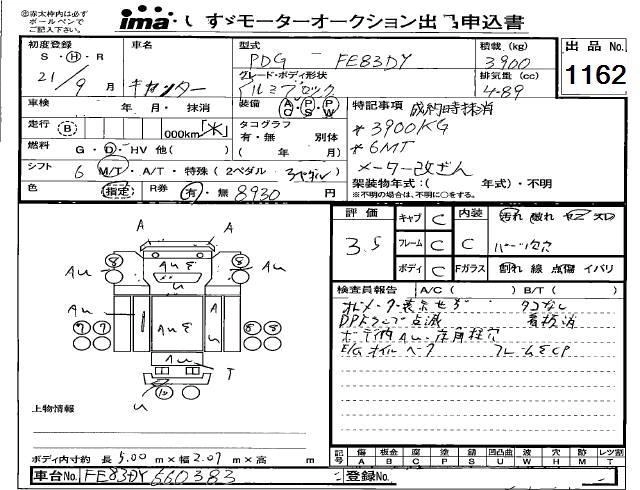 ※赤太枠内は必ず ボールペンで ご記入下さい。
ima いすゞモーターオークション出品申込書
初度登録 車名 型式 PDG - FE83DY 積載 (kg) 3900 出品 No.
S・H・R 21/9 月 キャンター グレード・ボディ形状 アルミブロック 排気量 (cc) 4.89 1162
車検 年 月・抹消 装備 AC PS PW 特記事項 成約時抹消
走行 B 000km 米 タコグラフ 有・無 別体 ( 年 月) *3900KG
燃料 G・D・HV 他( ) *6MT
シフト 6 M/T・A/T・特殊 (2ペダル 3ペダル) メーター改ざん
色 指定 R券 有・無 8930 円 架装物年式:( 年式)・不明
※不明の場合は、不明に○をする。
評価 3.5 キャブ C 内装 C 汚れ 破れ ヤニ スレ
フレーム C ハード穴
ボディ C Fガラス 割れ 線 点傷 イバリ
検査員報告 A/C ( ) B/T ( )
オドメーター表示せず タコなし
DPFランプ点滅 看板消
ボデー内AU・床角柱穴
E/Gオイルベーク フレームSCP
A A
Au Au
T
U
上物情報
ボディ内寸約 長 5.00 m×幅 2.07 m×高 m
記号 傷 A 板金 B 腐 C 塗 P 錆 S 凹凸曲 U 波 W 穴 H 欠 M レツ割 T
車台No. FE83DY 560383 登録No.